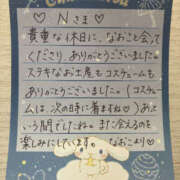 ♡Nさま♡
貴重な休日に、なおこと会って
くださり ありがとうございました。
ステキなお土産もコスチュームも
ありがとうございました。(コスチュ
ームは、次の時に着ますね♡)あっと
いう間でしたね。また会えるのを
楽しみにしています。なおこより♡